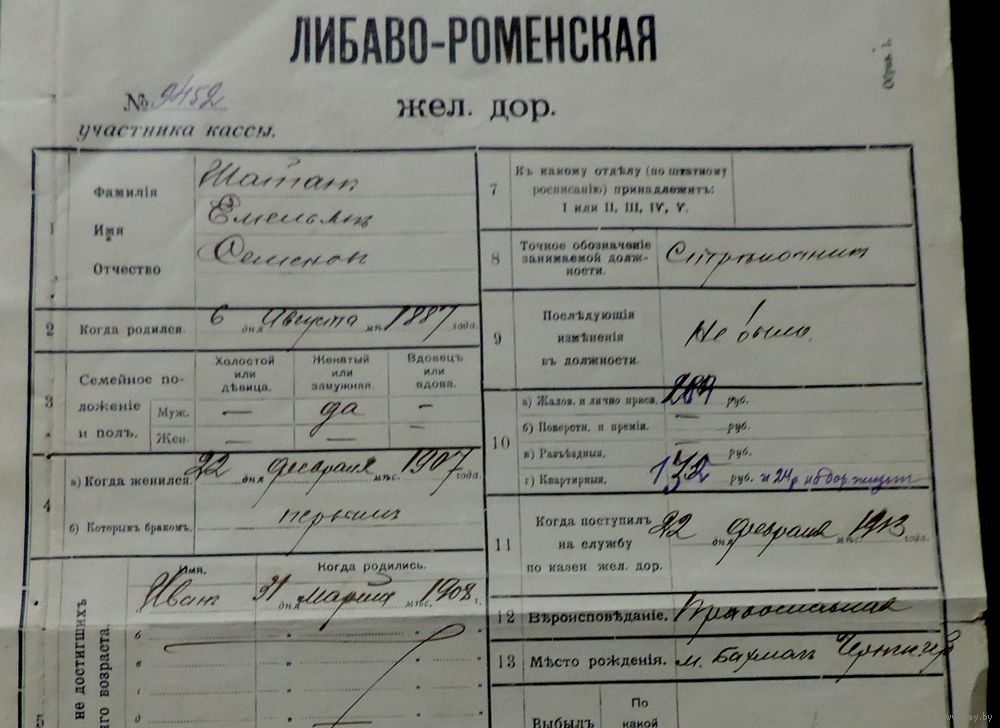 ЛИБАВО-РОМЕНСКАЯ
жел. дор.
№ 9452
участника кассы.
1
Фамилія
Имя Емельянъ
Отчество Семенов
2 Когда родился. 6 дня Августа мѣс. 1887 года.
3 Семейное по-
ложеніе
и полъ.
Холостой
или
дѣвица.
Женатый
или
замужняя.
Вдовецъ
или
вдова.
Муж. — да -
Жен. — — -
4 а) Когда женился. 22 дня февраля мѣс. 1907 года.
б) Которымъ бракомъ. первымъ
5
не достигшихъ
возраста.
Имя. Когда родились.
Иван 31 дня марта мѣс. 1908 г.
б " "
в " "
г " "
д " "
7 Къ какому отдѣлу (по штатному
росписанію) принадлежитъ:
I или II, III, IV, V.
8 Точное обозначеніе
занимаемой долж-
ности.
Стрѣлочник
9 Послѣдующія
измѣненія
въ должности.
Не было.
10
а) Жалов. и лично присв. руб.
б) Поверстн. и преміи. — руб.
в) Разъѣздныя. — руб.
г) Квартирныя. 132 руб. и 24р
11 Когда поступилъ
на службу
по казен. жел. дор.
22 дня февраля мѣс. 1913 года.
12 Вѣроисповѣданіе. Православная
13 Мѣсто рожденія. м. Бахмач Чернигов
Выбылъ
По
какой